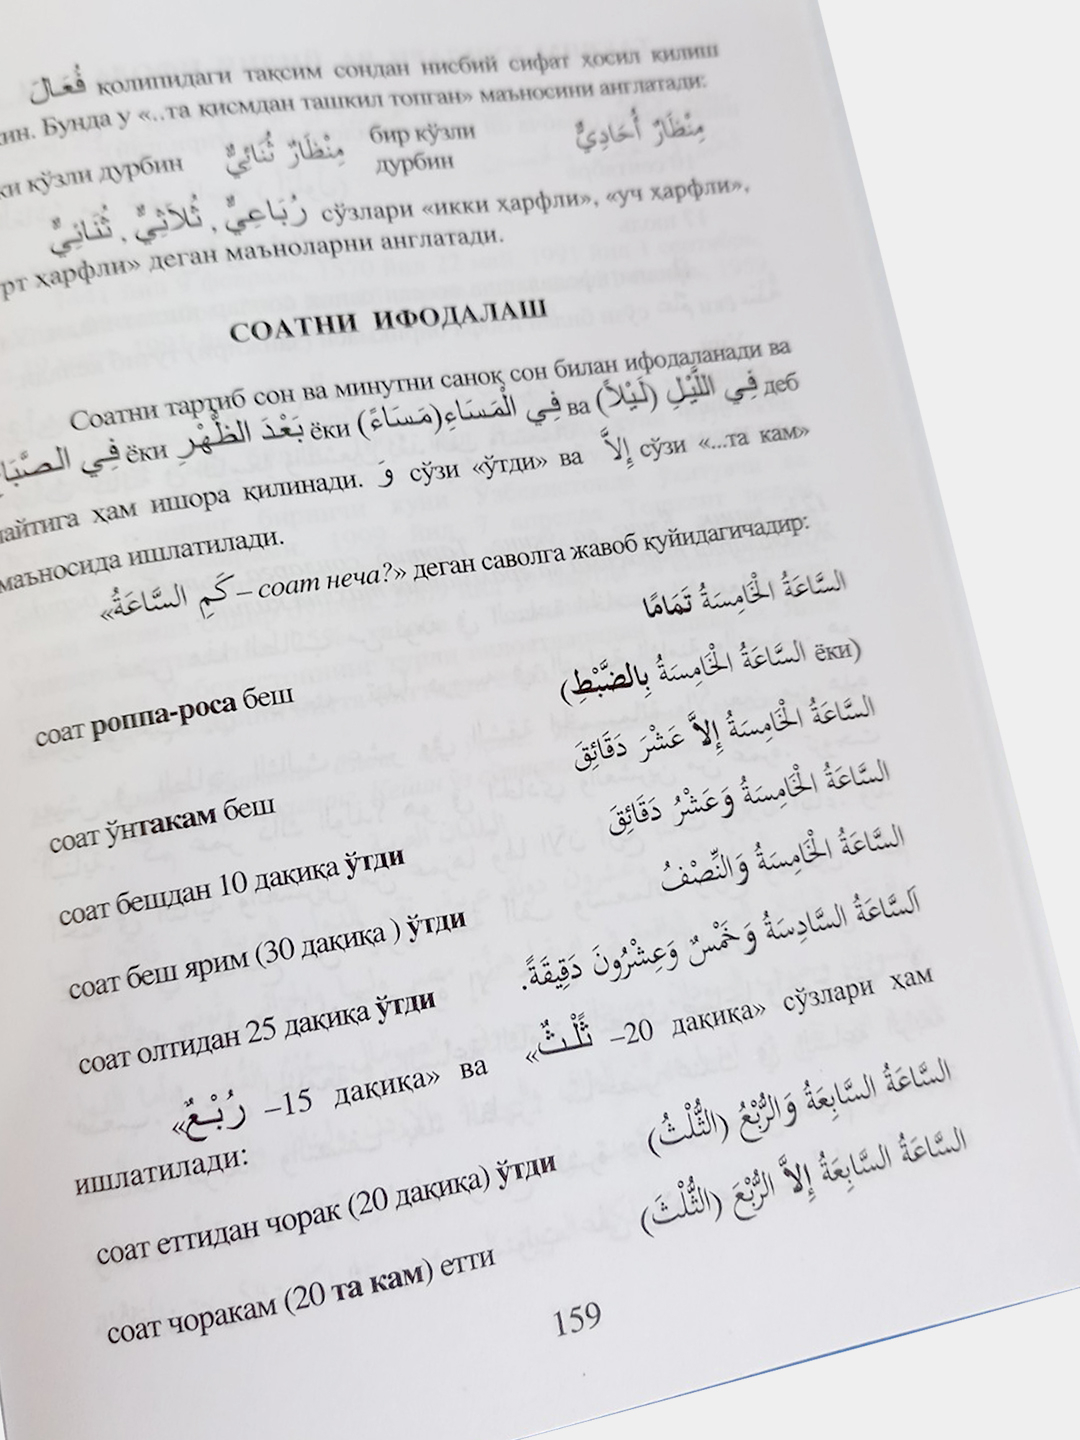 فُعَالَ қолипидаги тақсим сондан нисбий сифат ҳосил қилиш
Бунда у «..та қисмдан ташкил топган» маъносини англатади:
кўзли дурбин مِنْظَارٌ ثُنَائِيٌّ бир кўзли дурбин مِنْظَارٌ أُحَادِيٌّ
ثُنَائِيٌّ , ثُلاَثِيٌّ , رُبَاعِيٌّ сўзлари «икки ҳарфли», «уч ҳарфли»,
ҳарфли» деган маъноларни англатади.
СОАТНИ ИФОДАЛАШ
Соатни тартиб сон ва минутни саноқ сон билан ифодаланади ва
ёки بَعْدَ الظُّهْرِ ёки فِي الْمَسَاءِ (مَسَاءً) ва فِي اللَّيْلِ (لَيْلاً) деб
ҳам ишора қилинади. وَ сўзи «ўтди» ва إِلاَّ сўзи «...та кам»
маъносида ишлатилади.
«كَمِ السَّاعَةُ – соат неча?» деган саволга жавоб қуйидагичадир:
соат роппа-роса беш السَّاعَةُ الْخَامِسَةُ تَمَامًا
(ёки السَّاعَةُ الْخَامِسَةُ بِالضَّبْطِ)
соат ўнтакам беш السَّاعَةُ الْخَامِسَةُ إِلاَّ عَشْرَ دَقَائِقَ
соат бешдан 10 дақиқа ўтди السَّاعَةُ الْخَامِسَةُ وَعَشْرُ دَقَائِقَ
соат беш ярим (30 дақиқа ) ўтди السَّاعَةُ الْخَامِسَةُ وَالنِّصْفُ
соат олтидан 25 дақиқа ўтди اَلسَّاعَةُ السَّادِسَةُ وَخَمْسٌ وَعِشْرُونَ دَقِيقَةً.
«رُبْعٌ –15 дақиқа» ва «ثُلْثٌ –20 дақиқа» сўзлари ҳам
ишлатилади:
соат еттидан чорак (20 дақиқа) ўтди السَّاعَةُ السَّابِعَةُ وَالرُّبْعُ (الثُّلْثُ)
соат чоракам (20 та кам) етти السَّاعَةُ السَّابِعَةُ إِلاَّ الرُّبْعَ (الثُّلْثَ)
159